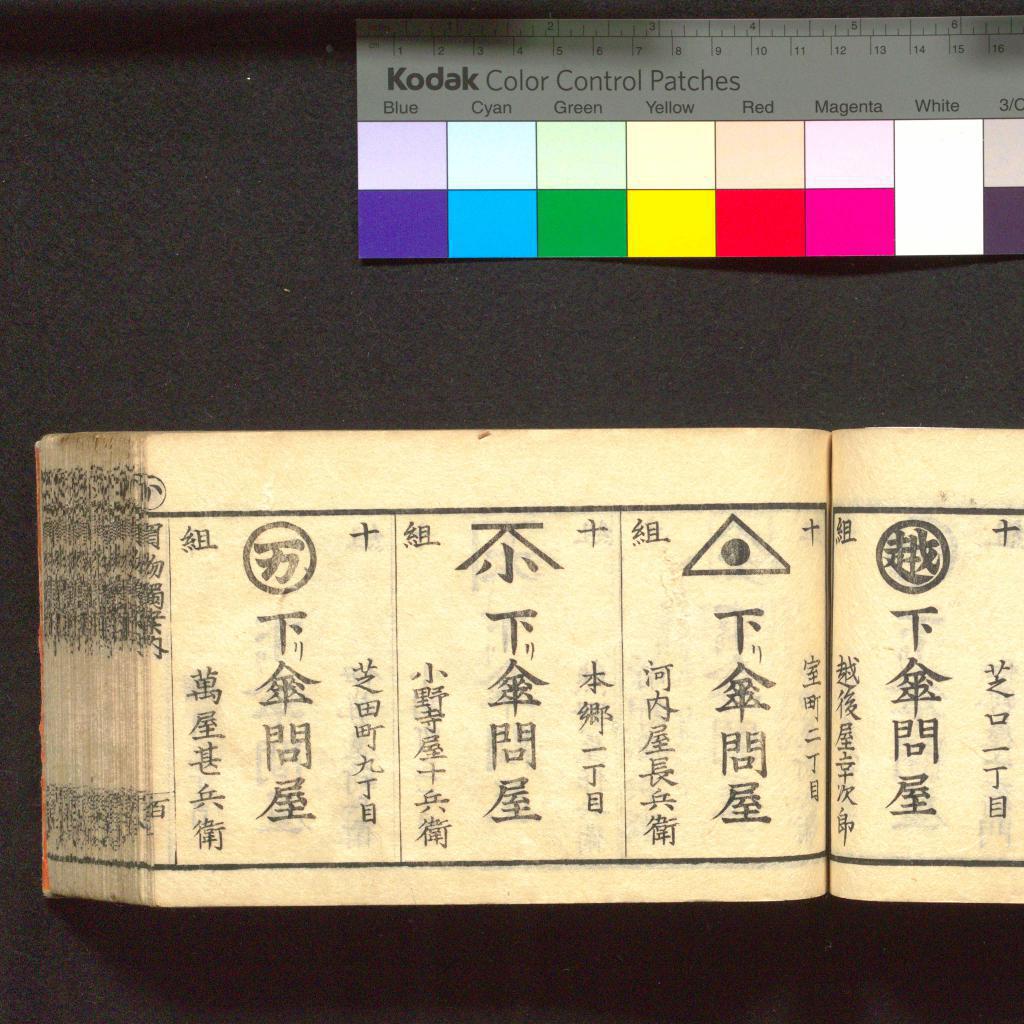 Kodak Color Control Patches
Blue Cyan Green Yellow Red Magenta White 3/C
十
組
越
芝口一丁目
下傘問屋
越後屋幸次郎
十
組
室町二丁目
下リ傘問屋
河内屋長兵衛
十
組
小
本郷一丁目
下リ傘問屋
小野寺屋十兵衛
十
組
万
芝田町九丁目
下リ傘問屋
萬屋甚兵衛
買物獨案内
百